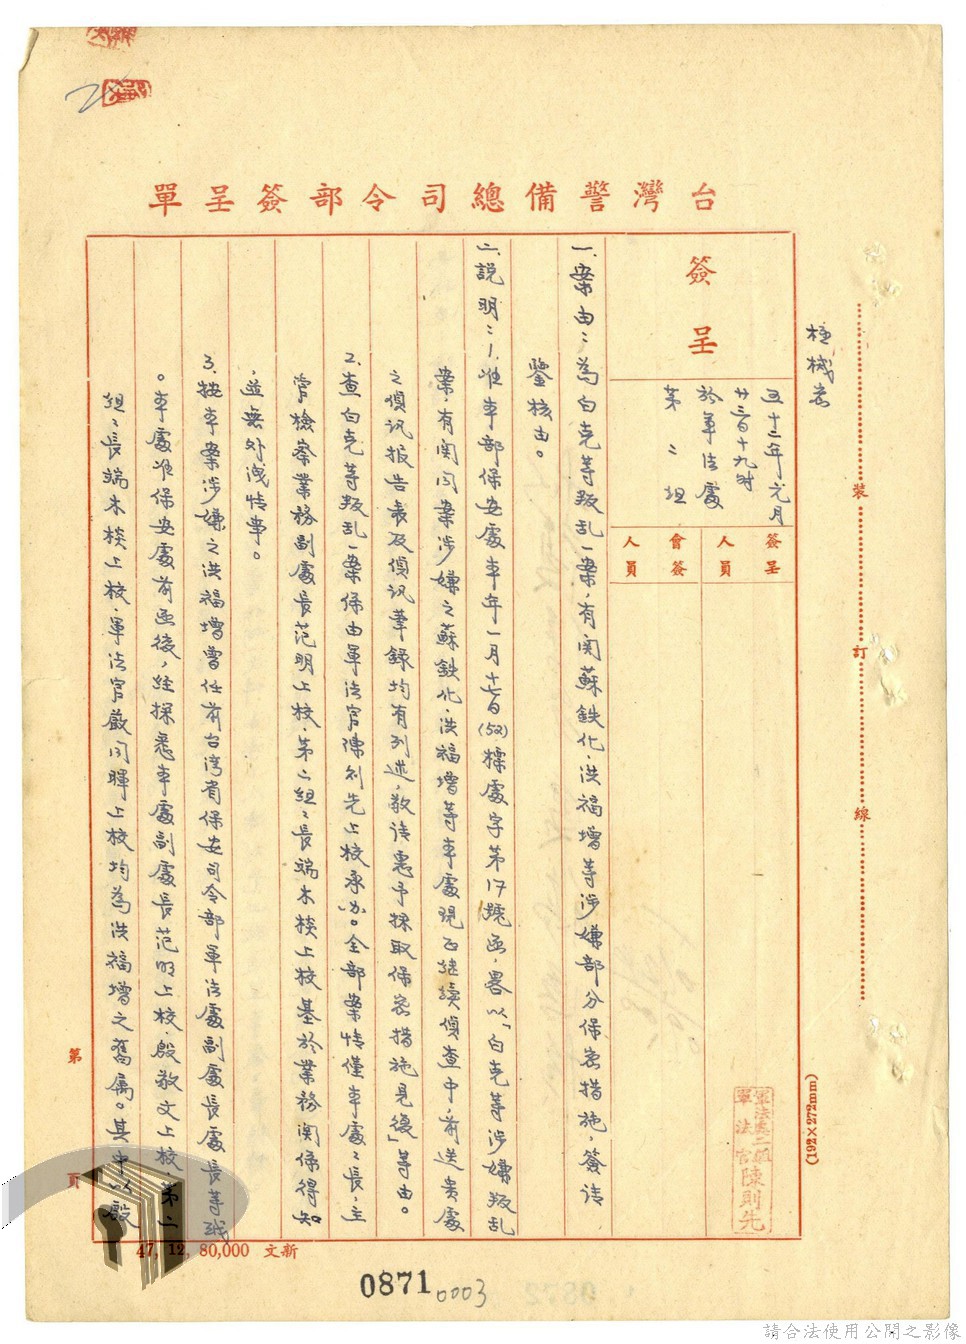 台灣警備總司令部簽呈單
極機密
簽呈
五十二年元月
廿三日十九時
於軍法處
第二組
簽呈人員
會簽人員
一、案由：為白克等叛乱一案，有関蘇鉄化、洪福增等涉嫌部分保密措施，簽請
鑒核由。
二、說明：1.准本部保安處本年一月十七日(52)標處字第17號函，畧以「白克等涉嫌叛乱
案，有関同案涉嫌之蘇鉄化、洪福增等本處現正继續偵查中，前送貴處
之偵訊报告表及偵訊筆錄均有列述，敬請惠予採取保密措施見復」等由。
2.查白克等叛乱一案係由軍法官陳則先上校承办。全部案情僅本處處長，主
官檢察業務副處長范明上校，第二組組長端木棪上校基於業務関係得知
，並無外洩情事。
3.按本案涉嫌之洪福增曾任前台湾省保安司令部軍法處副處長處長等職
。本處准保安處前函後，經探悉本處副處長范明上校、殷敬文上校、第二
組組長端木棪上校、軍法官嚴同暉上校均為洪福增之舊属。其中以殷
軍法處二組
軍法官陳則先
裝
訂
線
(192×272mm)
第
頁
47, 12, 80,000 文新
0871
0003
請合法使用公開之影像